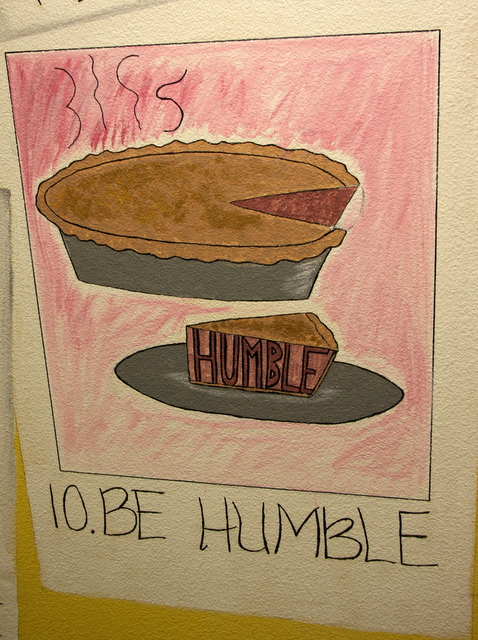 HUMBLE
10. BE HUMBLE